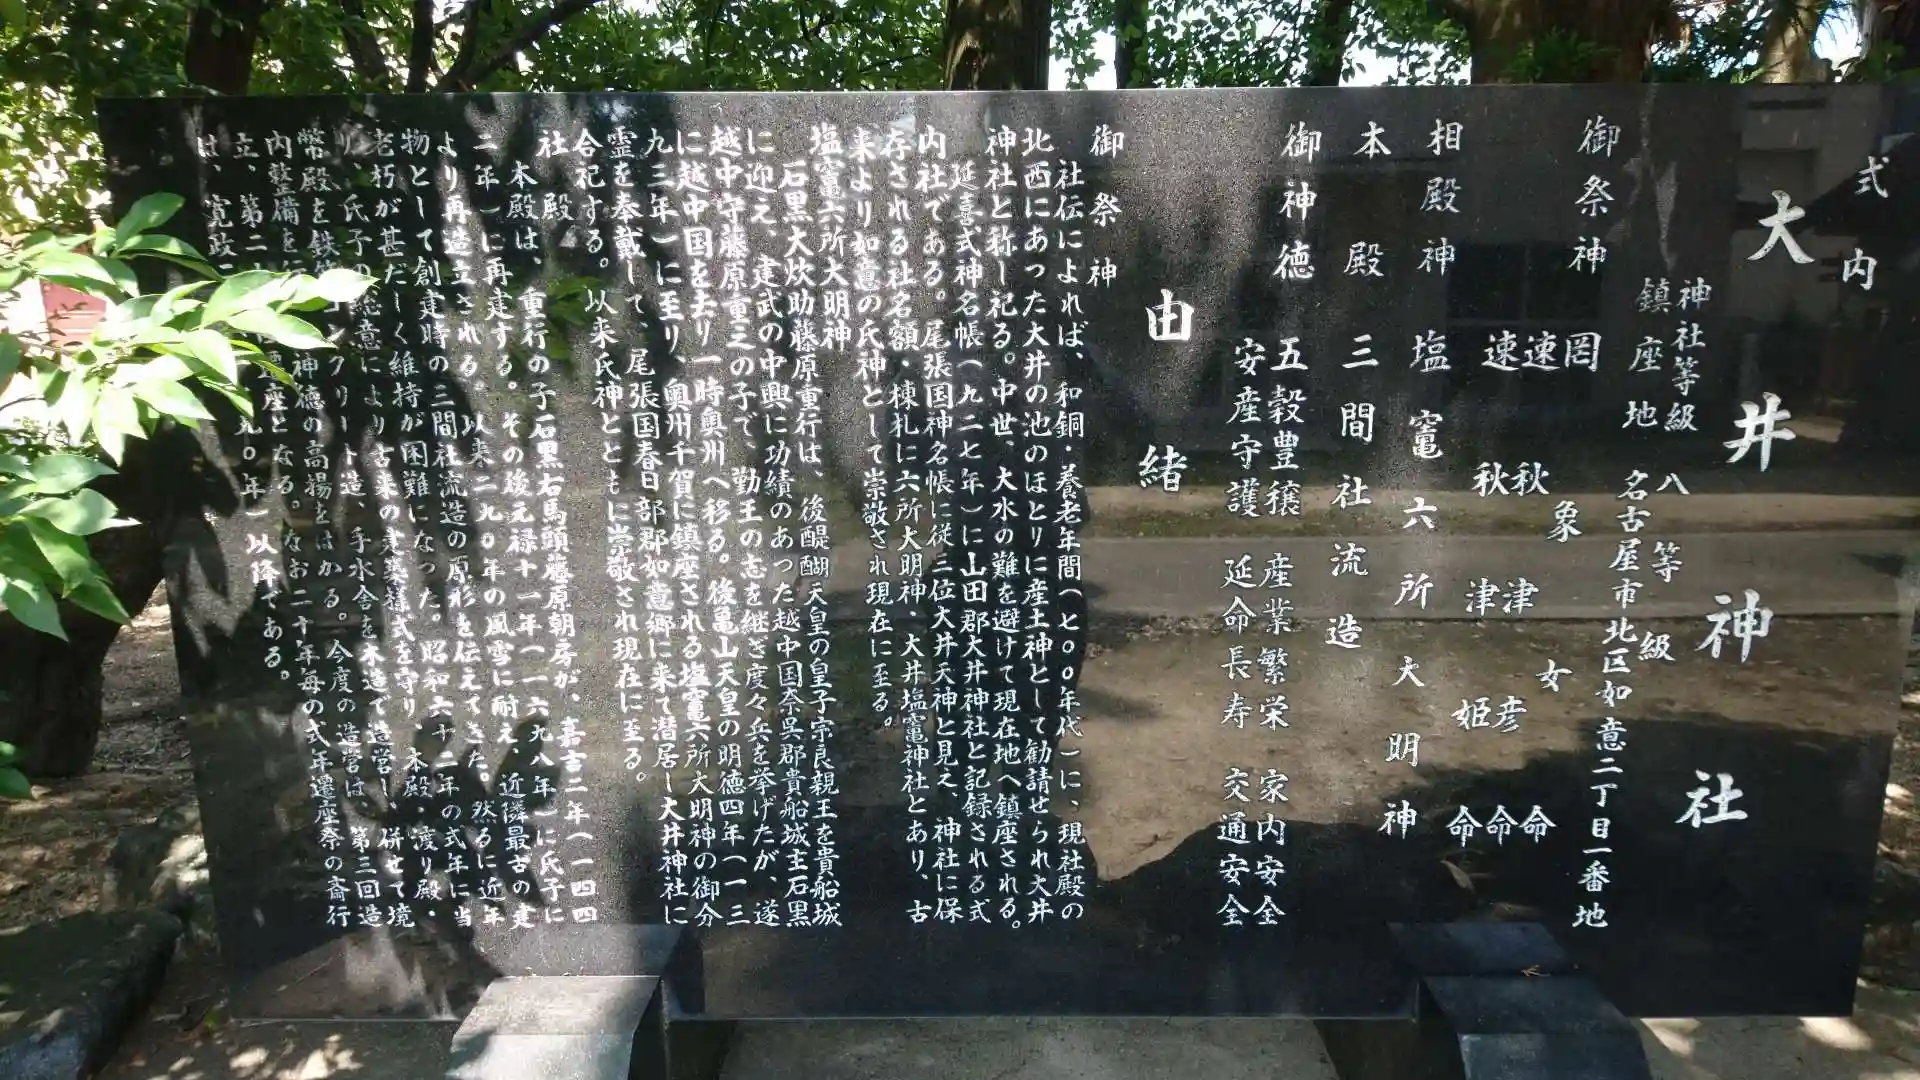 式内
大井神社
神社等級 八等級
鎮座地 名古屋市北区如意二丁目一番地
御祭神 罔象女命
速秋津彦命
速秋津姫命
相殿神 塩竈六所大明神
本殿 三間社流造
御神徳 五穀豊穣 産業繁栄 家内安全
安産守護 延命長寿 交通安全
由緒
御祭神
社伝によれば、和銅・養老年間(七〇〇年代)に、現社殿の
北西にあった大井の池のほとりに産土神として勧請せられ大井
神社と称し祀る。中世、大水の難を避けて現在地へ鎮座される。
延喜式神名帳(九二七年)に山田郡大井神社と記録される式
内社である。尾張国神名帳に従三位大井天神と見え、神社に保
存される社名額・棟札に六所大明神・大井塩竈神社とあり、古
来より如意の氏神として崇敬され現在に至る。
塩竈六所大明神
石黒大炊助藤原重行は、後醍醐天皇の皇子宗良親王を貴船城
に迎え、建武の中興に功績のあった越中国奈呉郡貴船城主石黒
越中守藤原重之の子で、勤王の志を継ぎ度々兵を挙げたが、遂
に越中国を去り一時奥州へ移る。後亀山天皇の明徳四年(一三
九三年)に至り、奥州千賀に鎮座される塩竈六所大明神の御分
霊を奉戴して、尾張国春日部郡如意郷に来て潜居し大井神社に
合祀する。以来氏神とともに崇敬され現在に至る。
社殿
本殿は、重行の子石黒右馬頭藤原朝房が、嘉吉二年(一四四
二年)に再建する。その後元禄十一年(一六九八年)に氏子に
より再造立される。以来二九〇年の風雪に耐え、近隣最古の建
物として創建時の三間社流造の原形を伝えてきた。然るに近年
老朽が甚だしく維持が困難になった。昭和六十二年の式年に当
り、氏子の総意により古来の建築様式を守り、本殿・渡り殿・
幣殿を鉄筋コンクリート造、手水舎を木造で造営し、併せて境
内整備を 神徳の高揚をはかる。今度の造営は、第三回造
立、第二 座となる。なお二十年毎の式年遷座祭の斎行
は、寛政二 九〇年)以降である。